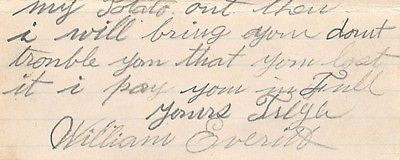 my Potato out then
i will bring your dont
trouble you that you lost
it i pay you in Full
yours Truly
William Everitt